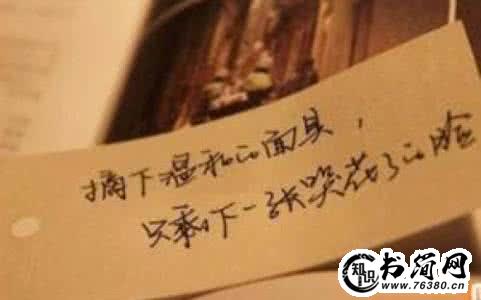 摘下温和的面具，
只剩下一张哭花了的脸
知识
书简网
www.76380.cn